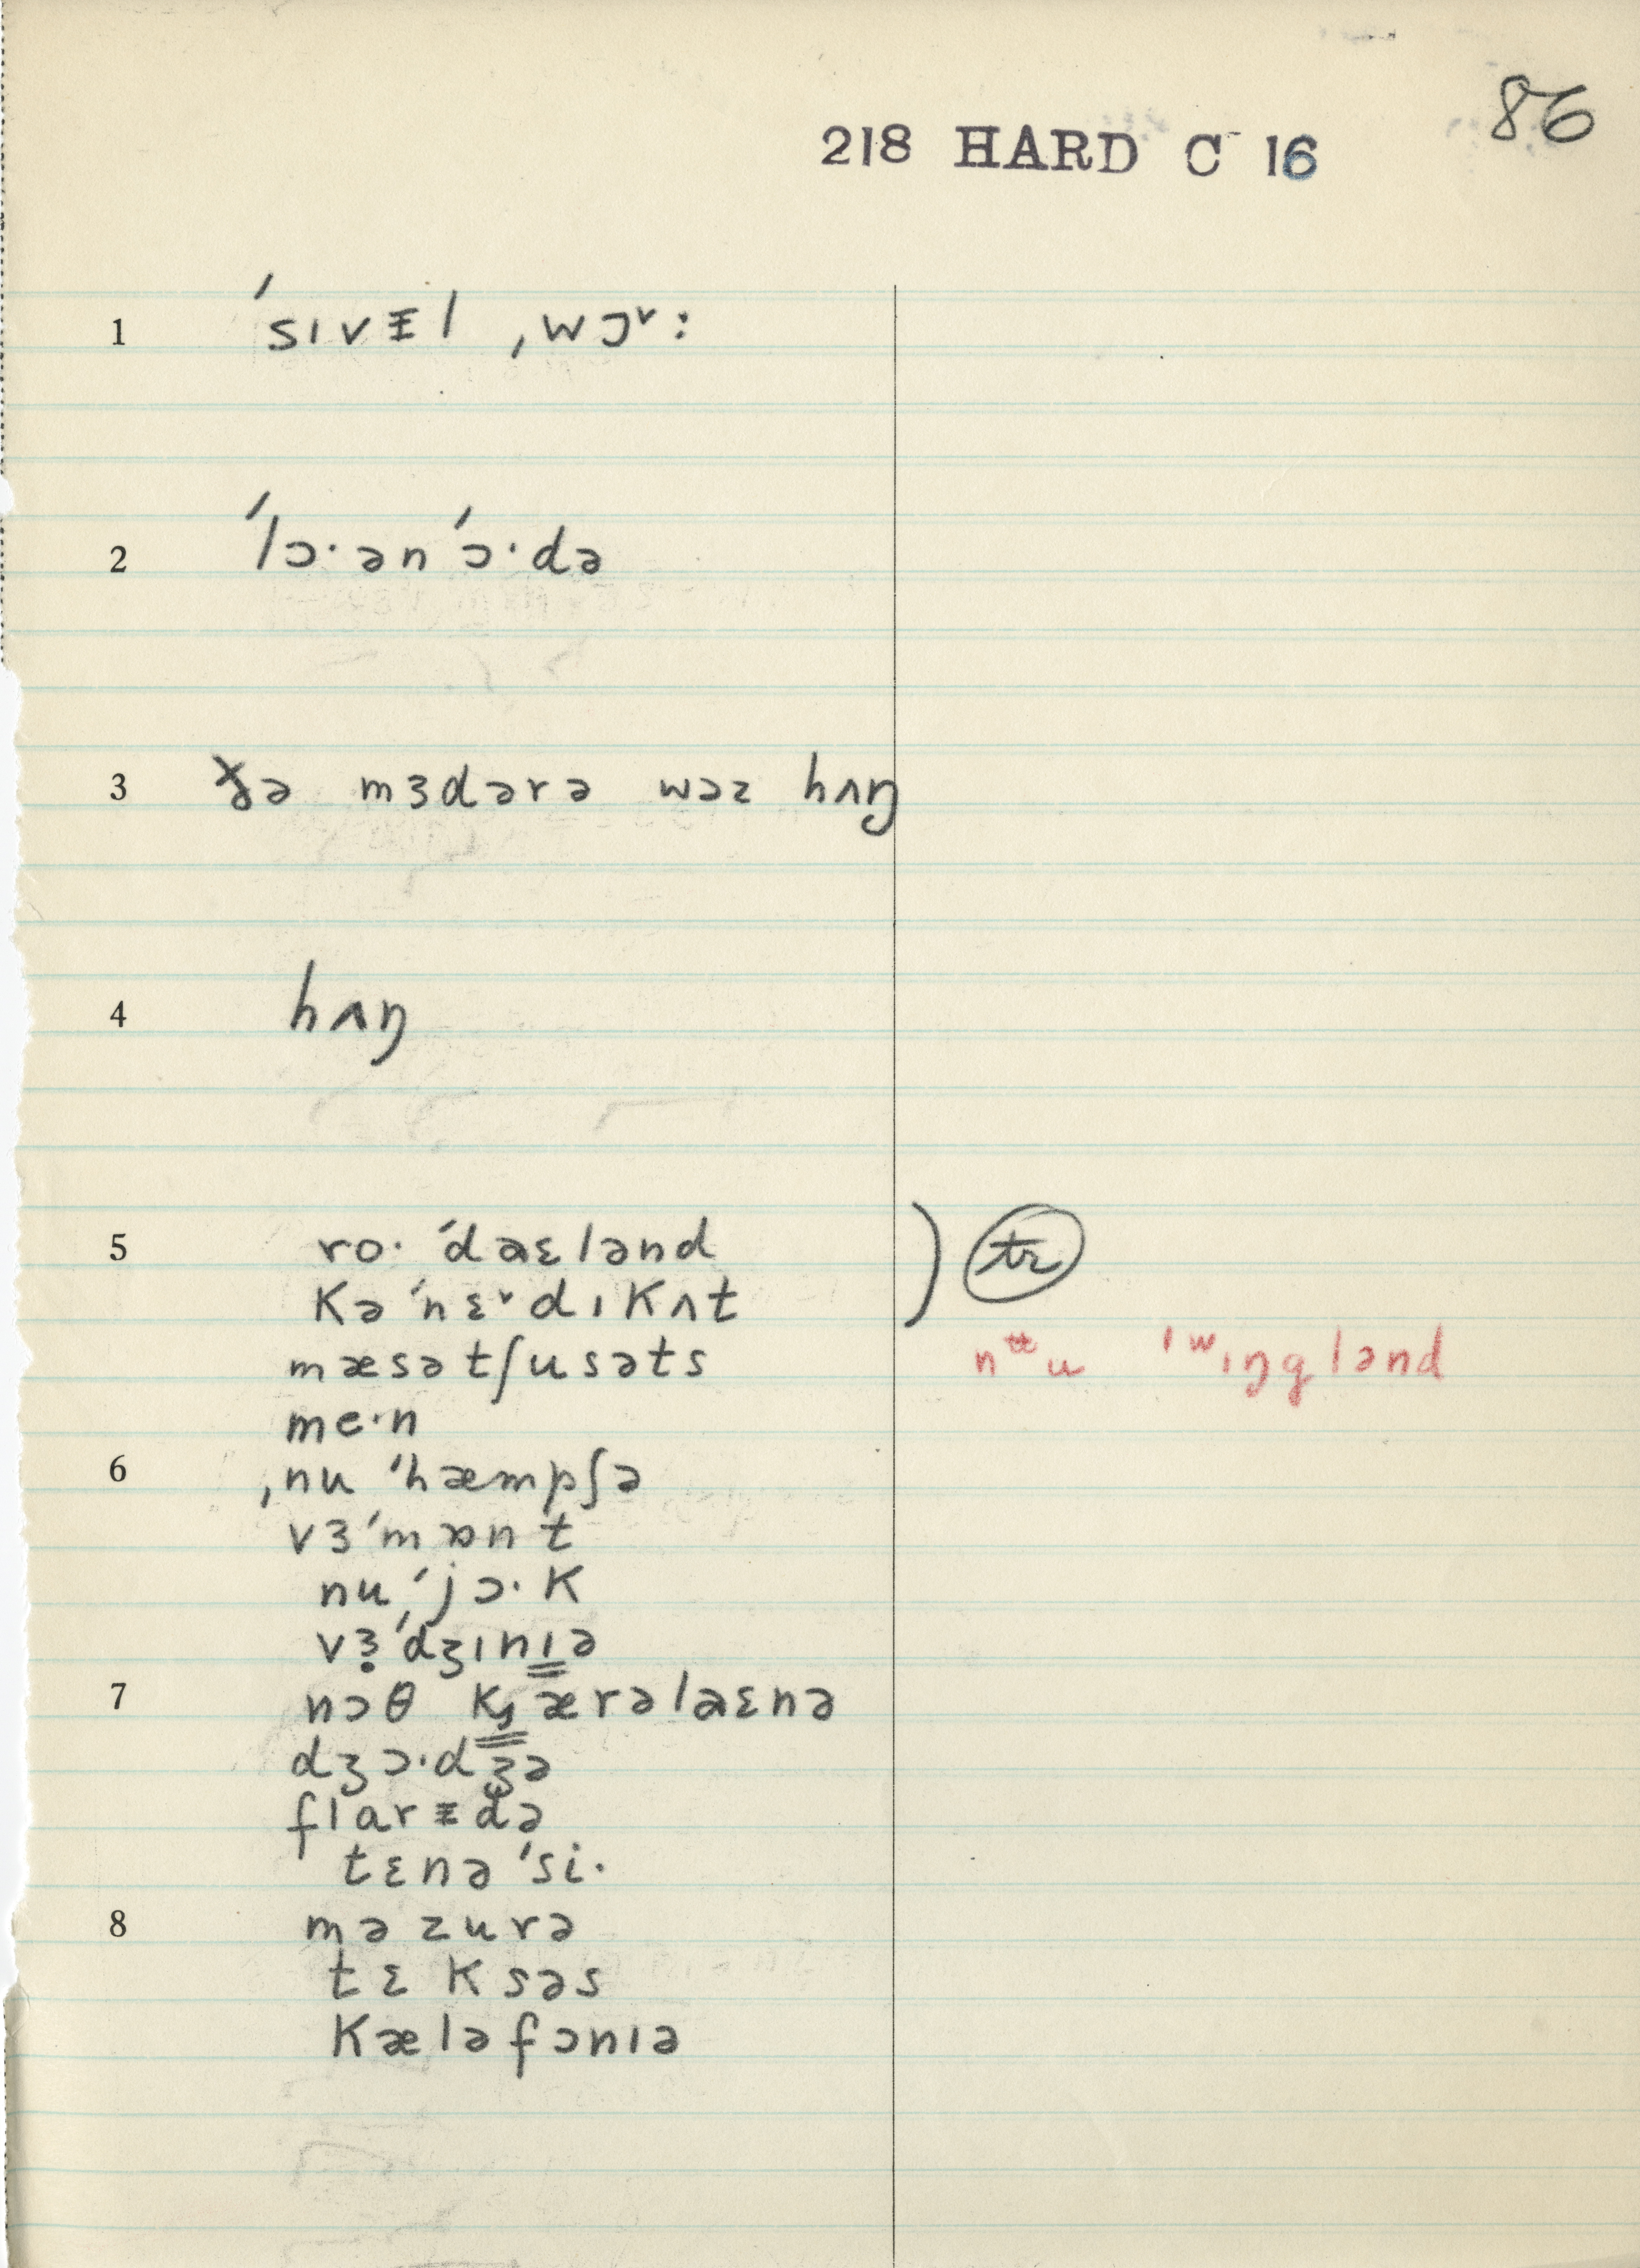 86
218 HARD C 16
1 ˈsɪvᵻl ˌwɔ˅:
2 ˈlɔ·ənˈɔ·də
3 ðə mɜdərə wəz hʌŋ
4 hʌŋ
5 ro·ˈdaɛlənd ) tr
kəˈnɛ˅dɪkʌt
mæsətʃusəts nᵻu ˈʷɪŋglənd
me·n
6 ˌnuˈhæmpʃə
vɜˈmɒnt
nuˈjɔ·k
vɜ̣ˈdʒɪnɪə
7 nɔθ kærəlaɛnə
dʒɔ·dʒə
flarᵻdə
tɛnəˈsi·
8 məzurə
tɛksəs
kæləfɔnɪə